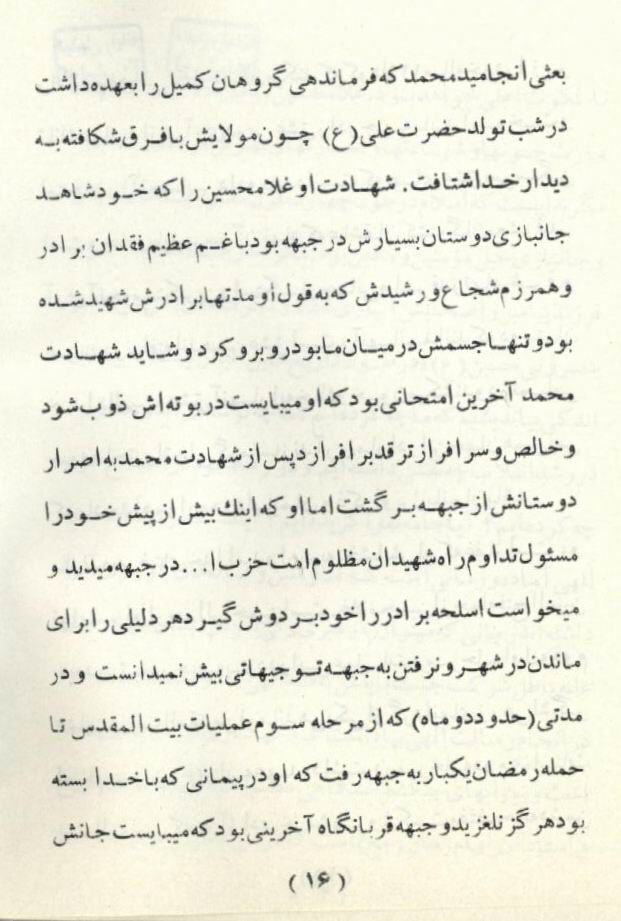 بعثی انجامید محمد که فرماندهی گروهان کمیل را بعهده داشت
در شب تولد حضرت علی (ع) چون مولایش با فرق شکافته به
دیدار خدا شتافت. شهادت او غلامحسین را که خود شاهد
جانبازی دوستان بسیارش در جبهه بود با غم عظیم فقدان برادر
و همرزم شجاع و رشیدش که به قول او مدتها برادرش شهید شده
بود و تنها جسمش در میان ما بود روبرو کرد و شاید شهادت
محمد آخرین امتحانی بود که او میبایست در بوته اش ذوب شود
و خالص و سرافرازتر قد برافرازد پس از شهادت محمد به اصرار
دوستانش از جبهه برگشت اما او که اینك بیش از پیش خود را
مسئول تداوم راه شهیدان مظلوم امت حزب ا... در جبهه میدید و
میخواست اسلحه برادر را خود بر دوش گیرد هر دلیلی را برای
ماندن در شهر و نرفتن به جبهه توجیهاتی بیش نمیدانست و در
مدتی (حدود دو ماه) که از مرحله سوم عملیات بیت المقدس تا
حمله رمضان یکبار به جبهه رفت که او در پیمانی که با خدا بسته
بود هرگز نلغزید و جبهه قربانگاه آخرینی بود که میبایست جانش
(۱۶)